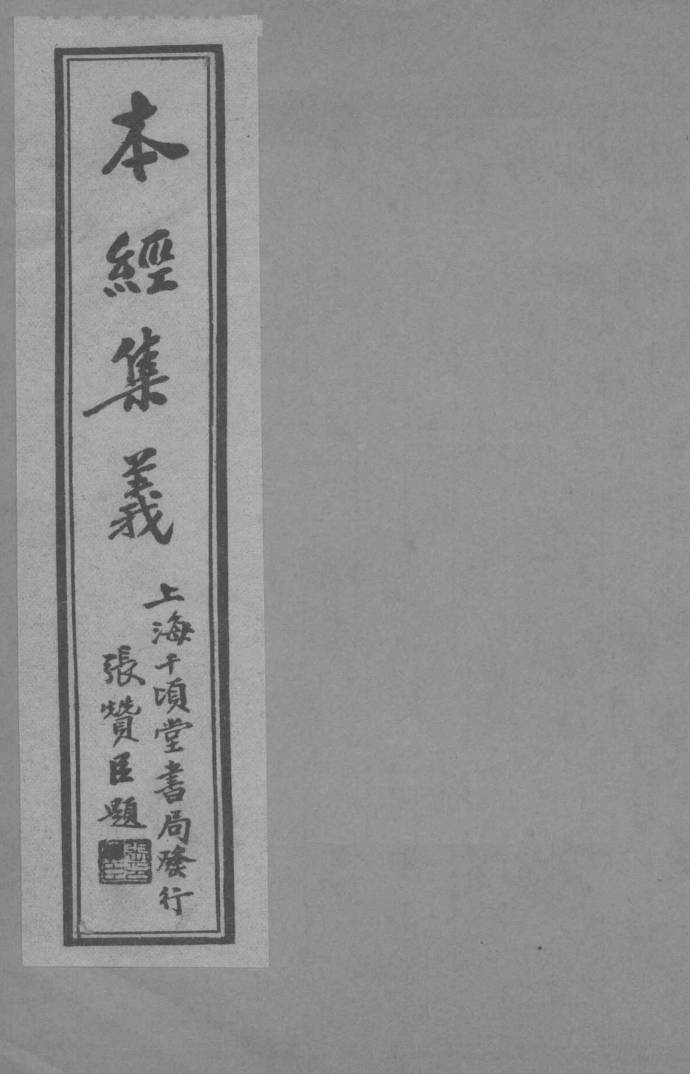 本經集義
上海千頃堂書局發行
張贊臣題